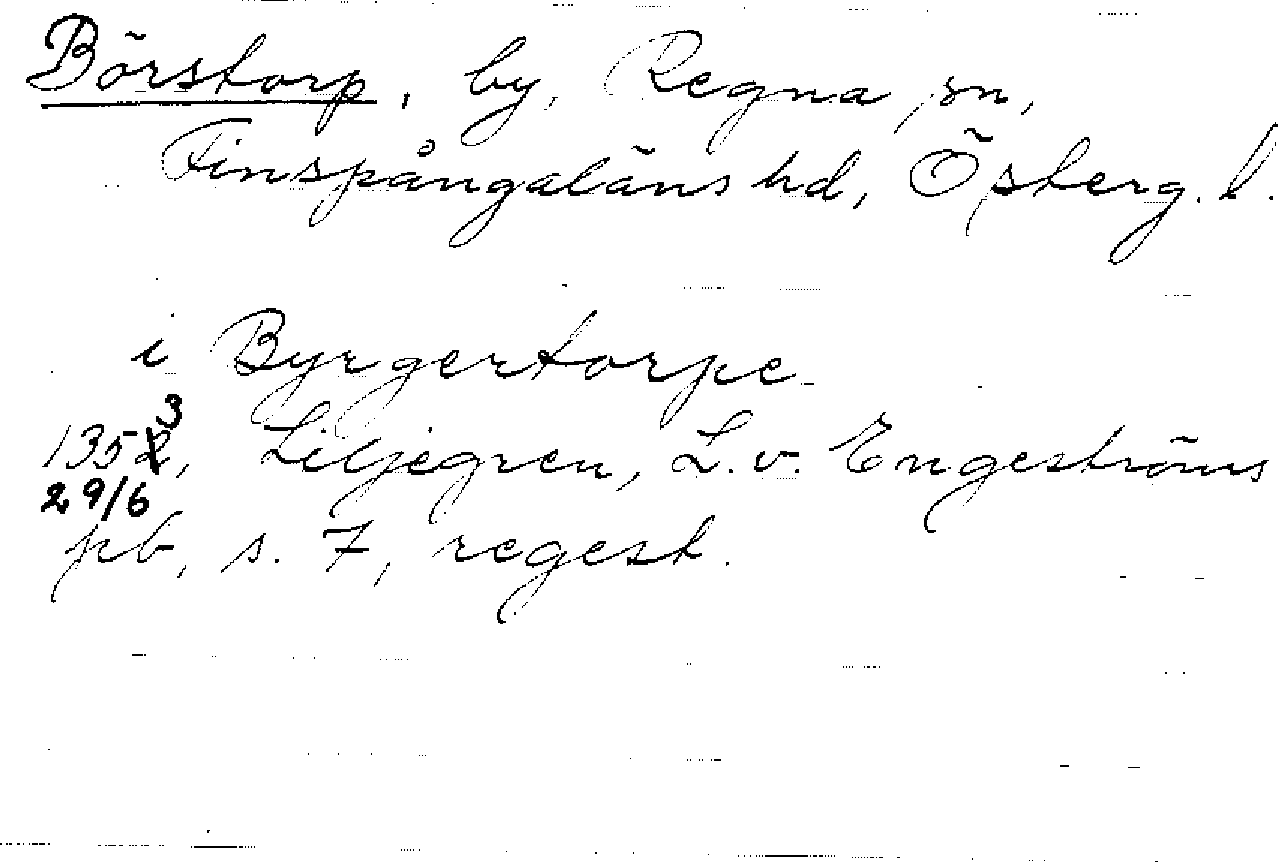 Börstorp, by, Regna sn,
Finspångaläns hd, Österg. l.
i Byrgertorpe
1353, Liljegren, L. v. Engeströms
29/6
pb, s. 7, regest.